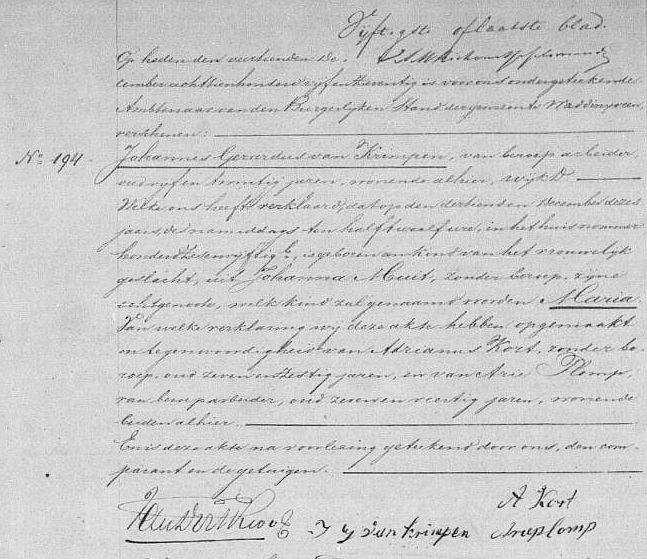 Vijftigste of laatste blad.
Op heden den veertienden De-
cember achttienhonderd vijf en zeventig is voor ons ondergeteekende
Ambtenaar van den Burgerlijken Stand der gemeente Waddinxveen
verschenen:
No 194. Johannes Gerardus van Krimpen, van beroep arbeider,
oud vijf en twintig jaren, wonende alhier, wijk D
Welke ons heeft verklaard, dat op den dertienden December dezes
jaars, des namiddags ten half twaalf ure, in het huis nummer
honderd zeven vijftig, is geboren een kind van het vrouwelijk
geslacht, uit Johanna Muit, zonder beroep, zijne
echtgenoote, welk kind zal genaamd worden Maria.
Van welke verklaring wij deze akte hebben opgemaakt
in tegenwoordigheid van Adrianus Kort, zonder be-
roep, oud zeven en zestig jaren, en van Arie Plomp,
van beroep arbeider, oud zeven en veertig jaren, wonende
beiden alhier.
En is deze akte na voorlezing geteekend door ons, den com-
parant en de getuigen.
A Kort
J G van Krimpen Arieplomp